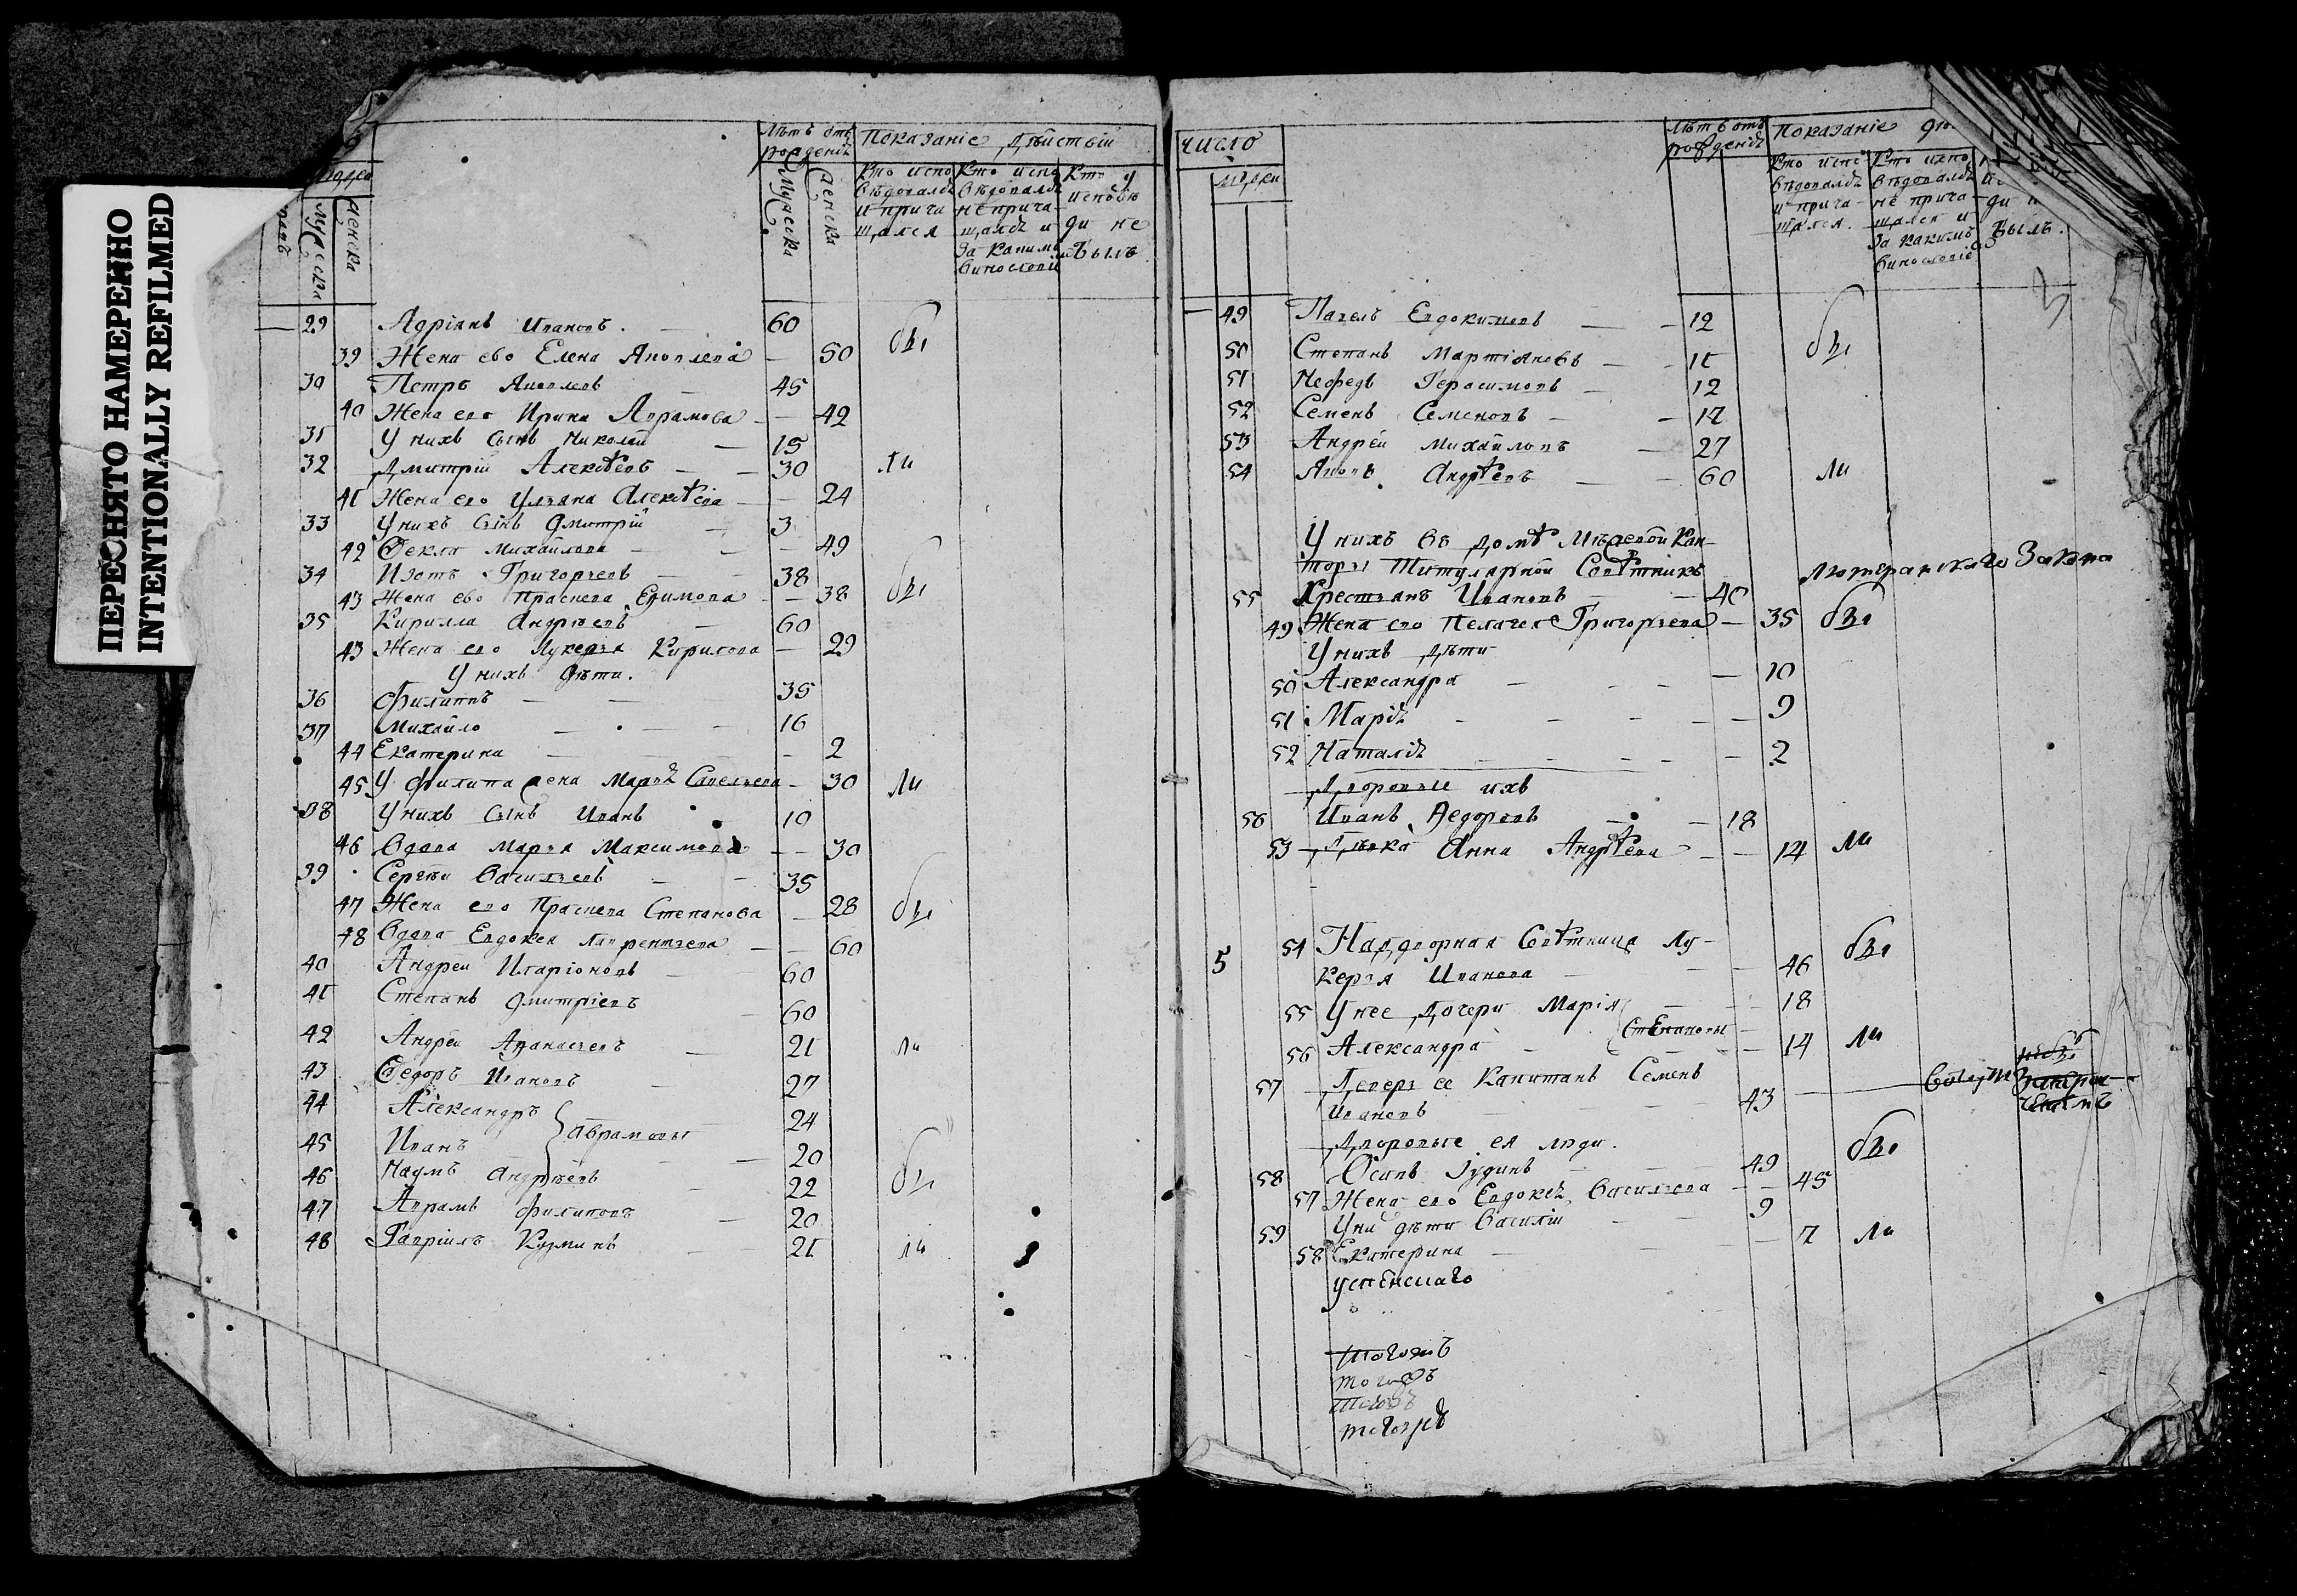 ПЕРЕСНЯТО НАМЕРЕННО
INTENTIONALLY REFILMED
Лѣтъ отъ рожденія
Показаніе дѣйствій
мужеска
женска
мужеска
женска
Кто испо
вѣдовался
и прича
щался
Кто испо
вѣдовался
не прича-
щался и
за какимъ
винословіем
Кто у
исповѣ
ди не
былъ
29 Адріянъ Ивановъ 60
39 Жена ево Елена Яковлева 50 бы
30 Петръ Яковлевъ 45
40 Жена его Ирина Аврамова 42
31 У нихъ сынъ Николай 15
32 Дмитрій Алексѣевъ 30 ли
41 Жена его Ульяна Алексѣева 24
33 У нихъ сынъ Дмитрій 3
42 Фекла Михайлова 49
34 Изотъ Григорьевъ 38
43 Жена ево Прасковья Ефимова 38 бы
35 Кирилла Андрѣевъ 60
43 Жена его Лукерья Кирилова 29
У нихъ дѣти
36 Филиппъ 35
37 Михайло 16
44 Екатерина 2
45 У Филипа жена Марья Савельева 30 ли
38 У нихъ сынъ Иванъ 10
46 Вдова Марья Максимова 30
39 Сергѣй Васильевъ 35
47 Жена его Праскева Степанова 28 бы
48 Вдова Евдокея Лаврентьева 60
40 Андрей Иларіоновъ 60
41 Степанъ Дмитріевъ 60
42 Андрей Афанасьевъ 21 ли
43 Федоръ Ивановъ 27
44 Александръ 24
Аврамовы
45 Иванъ 20
46 Наумъ Андрѣевъ 22 бы
47 Аврамъ Филиповъ 20
48 Гаврилъ Кузминъ 21 ли
число
Лѣтъ отъ рожденія
Показаніе
Кто испо
вѣдовался
и прича-
щался
Кто испо
вѣдовался
не прича-
щался и
за какимъ
винословіе
ди н
былъ
49 Павелъ Евдокимовъ 12
50 Степанъ Мартіяновъ 11 бы
51 Мефедъ Герасимовъ 12
52 Семенъ Семеновъ 12
53 Андрей Михайловъ 27
54 Яковъ Андрѣевъ 60 ли
У нихъ въ домѣ Межевой Кан-
торы Титулярной Совѣтникъ Лютеранскаго Закона
55 Крестьянъ Ивановъ 40
49 Жена его Пелагея Григорьева 35 бы
У нихъ дѣти
50 Александра 10
51 Марія 9
52 Наталія 2
Дворовые ихъ
56 Иванъ Федоровъ 18
53 Дѣвка Анна Андрѣева 14 ли
5 54 Надворная Совѣтница Лу-
керья Иванова 46 бы
55 У нее дочери Марія 18
Степановы
56 Александра 14 ли
57 Деверь ее Капитанъ Семенъ
Ивановъ 43
Дворовые ея люди
58 Осипъ Іудинъ 49 бы
57 Жена его Евдокія Васильева 45
59 У ни дѣти Василій 9
58 Екатерина 7 ли
успенскаго
тогожъ
тогожъ
тогожъ
тогожъ